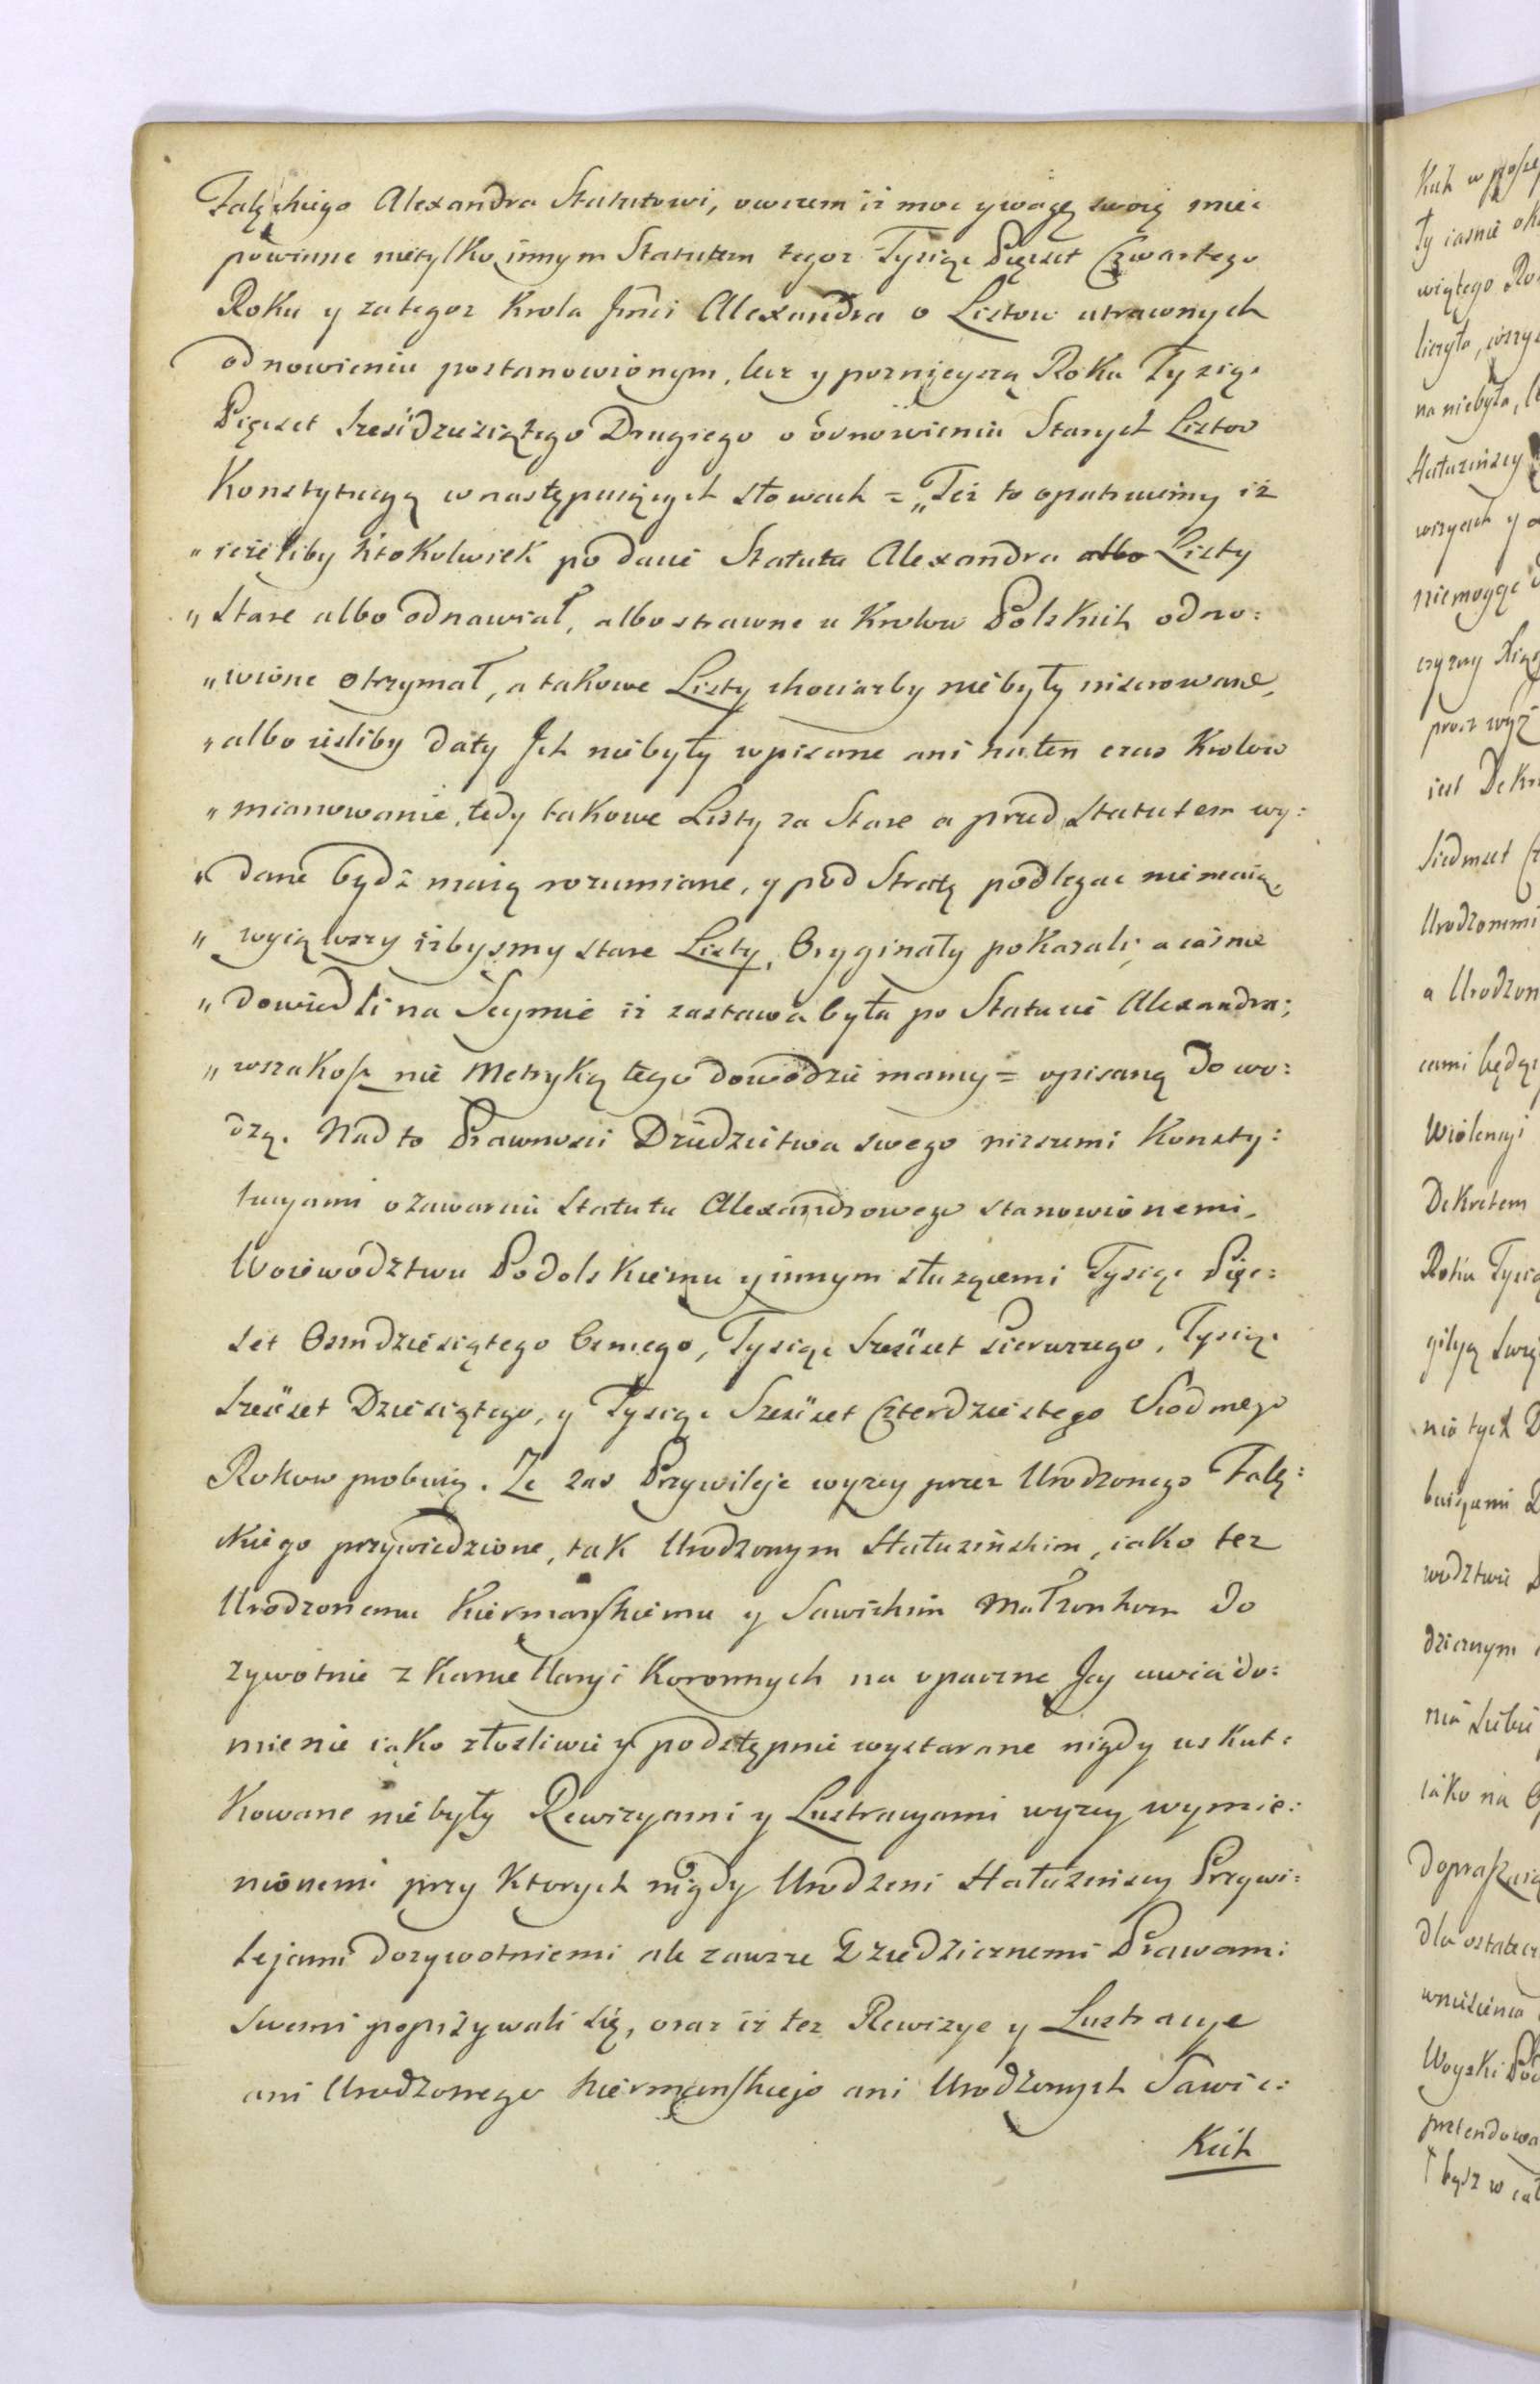 Falęckiego Alexandra Statutowi, owszem iż moc y wagę swoię mieć
powinne nietylko innym Statutem tegoż Tysiąc Pięcset Czwartego
Roku y za tegoż Krola Jmci Alexandra o Listow utraconych
odnowieniu postanowionym, lecz y poznieyszą Roku Tysiąc
Pięcset Sześćdziesiątego Drugiego o odnowieniu Starych Listow
Konstytucyą w następuiących słowach = „Też to opatruiemy iż
„ ieżeliby ktokolwiek po dacie Statutu Alexandra albo Listy
„ Stare albo odnawiał, albo strawne u Krolow Polskich odno:
„ wione otrzymał, a takowe Listy chociażby niebyły niserowane,
„ albo ieśliby daty Ich niebyły wpisane ani na ten czas Krolow
„ mianowanie, tedy takowe Listy za Stare a przed Statutem wy:
„ dane bydź maią rozumiane, y pod Stratę podlegać nie maią,
„ wyiąwszy iżbyśmy stare Listy, Oryginały pokazali, a iaśnie
„ dowiedli na Seymie iż zastawa była po Statucie Alexandra;
„ wszakosz nie Metryką tego dowodzić mamy = opisaną dowo:
dzą. Nadto Prawności Dziedzictwa swego niższemi Konsty:
tucyami o zawarciu Statutu Alexandrowego stanowionemi,
Woiewodztwu Podolskiemu y innym służącemi Tysiąc Pięc:
set Osmdziesiątego Osmego, Tysiąc Sześćset Pierwszego, Tysiąc
Sześćset Dziesiątego, y Tysiąc Sześćset Czterdziestego Siodmego
Rokow probuią. Że zaś Przywileje wyżey przez Urodzonego Falę:
ckiego przywiedzione, tak Urodzonym Hałuzińskim, iako też
Urodzonemu Kiermańskiemu y Sawickim Małżonkom do
żywotnie z Kancellaryi Koronnych na opaczne Jey uwiado:
mienie iako złośliwie y podstępnie wystarane nigdy uskut:
kowane niebyły Rewizyami y Lustracyami wyżey wymie:
nionemi przy ktorych nigdy Urodzeni Hałuzińscy Przywi:
lejami dożywotniemi ale zawsze Dziedzicznemi Prawami
Swemi popisywali się, oraz iż też Rewizye y Lustracye
ani Urodzonego Kiermańskiego ani Urodzonych Sawic:
Kich